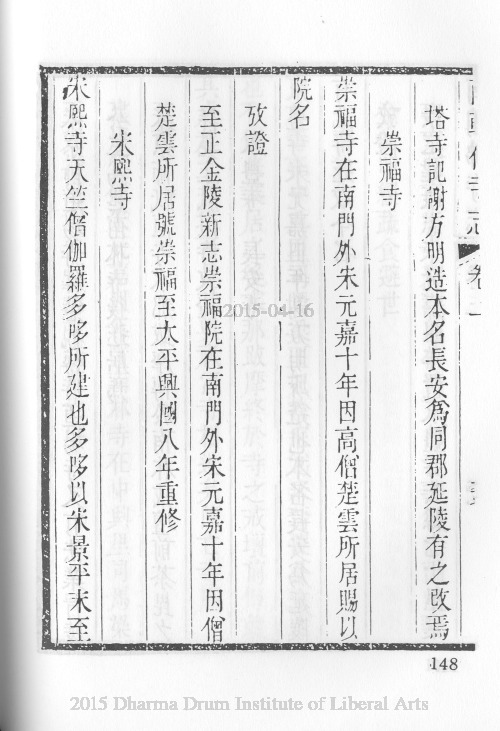 塔寺記謝方明造本名長安爲同郡延陵有之改焉
崇福寺
崇福寺在南門外宋元嘉十年因高僧楚雲所居賜以
院名
攷證
至正金陵新志崇福院在南門外宋元嘉十年因僧
楚雲所居號崇福至太平興國八年重修
宋熙寺
宋熙寺天竺僧伽羅多哆所建也多哆以宋景平末至
148
2015-04-16
2015 Dharma Drum Institute of Liberal Arts